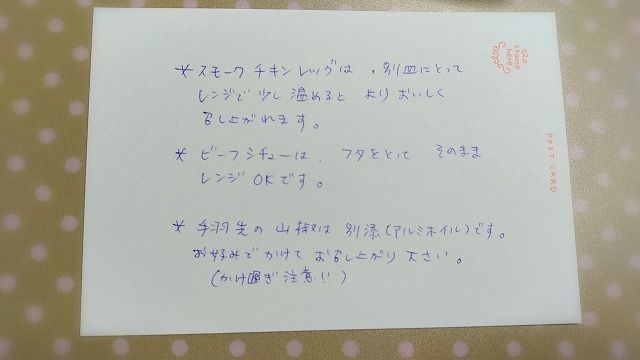 * スモークチキンレッグは、別皿にとって
レンジで少し温めると よりおいしく
召し上がれます。
* ビーフシチューは、フタをとって そのまま
レンジOKです。
* 手羽先の山椒は別添(アルミホイル)です。
お好みでかけてお召し上がり下さい。
(かけ過ぎ注意!!)
stamp
here
POST CARD